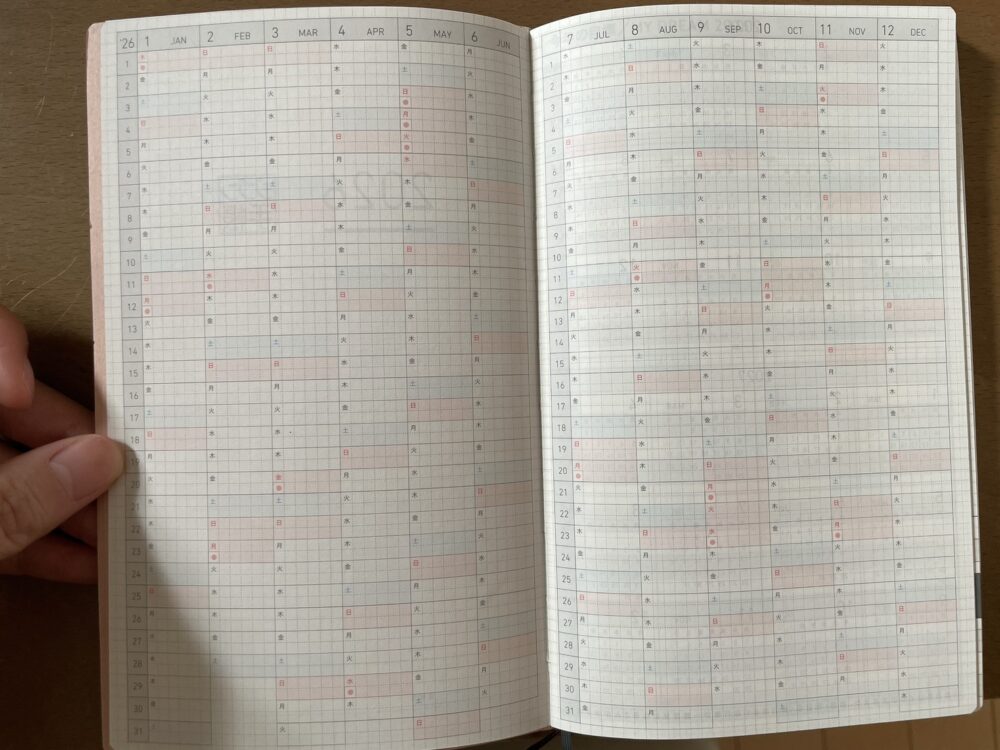 '26 1 JAN 2 FEB 3 MAR 4 APR 5 MAY 6 JUN
1 木 日 日 水 金 月
2 金 月 月 木 土 火
3 土 火 火 金 日 水
4 日 水 水 土 月 木
5 月 木 木 日 火 金
6 火 金 金 月 水 土
7 水 土 土 火 木 日
8 木 日 日 水 金 月
9 金 月 月 木 土 火
10 土 火 火 金 日 水
11 日 水 水 土 月 木
12 月 木 木 日 火 金
13 火 金 金 月 水 土
14 水 土 土 火 木 日
15 木 日 日 水 金 月
16 金 月 月 木 土 火
17 土 火 火 金 日 水
18 日 水 水 土 月 木
19 月 木 木 日 火 金
20 火 金 金 月 水 土
21 水 土 土 火 木 日
22 木 日 日 水 金 月
23 金 月 月 木 土 火
24 土 火 火 金 日 水
25 日 水 水 土 月 木
26 月 木 木 日 火 金
27 火 金 金 月 水 土
28 水 土 土 火 木 日
29 木 日 水 金 月
30 金 月 木 土 火
31 土 火 日
7 JUL 8 AUG 9 SEP 10 OCT 11 NOV 12 DEC
1 水 土 火 木 日 火
2 木 日 水 金 月 水
3 金 月 木 土 火 木
4 土 火 金 日 水 金
5 日 水 土 月 木 土
6 月 木 日 火 金 日
7 火 金 月 水 土 月
8 水 土 火 木 日 火
9 木 日 水 金 月 水
10 金 月 木 土 火 木
11 土 火 金 日 水 金
12 日 水 土 月 木 土
13 月 木 日 火 金 日
14 火 金 月 水 土 月
15 水 土 火 木 日 火
16 木 日 水 金 月 水
17 金 月 木 土 火 木
18 土 火 金 日 水 金
19 日 水 土 月 木 土
20 月 木 日 火 金 日
21 火 金 月 水 土 月
22 水 土 火 木 日 火
23 木 日 水 金 月 水
24 金 月 木 土 火 木
25 土 火 金 日 水 金
26 日 水 土 月 木 土
27 月 木 日 火 金 日
28 火 金 月 水 土 月
29 水 土 火 木 日 火
30 木 日 水 金 月 水
31 金 月 土 木